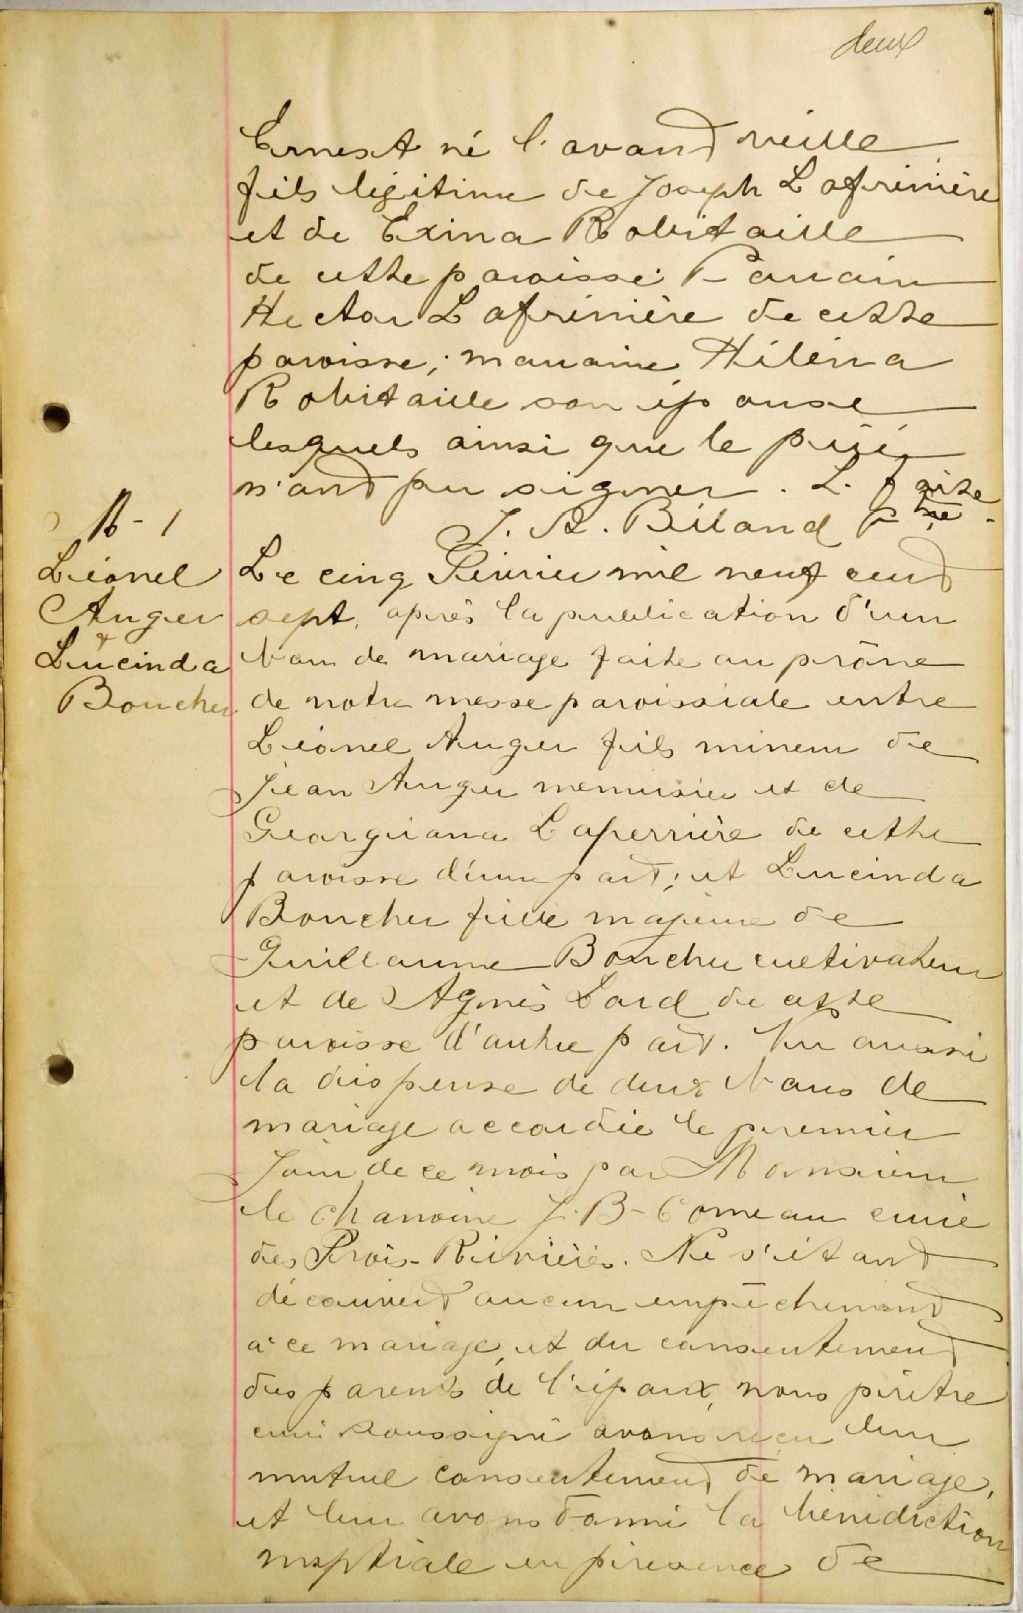 deux
Ernest né l'avant veille
fils légitime de Joseph Lafrenière
et de Exina Robitaille
de cette paroisse. Parrain
Hector Lafrenière de cette
paroisse; marraine Héléna
Robitaille son épouse
lesquels ainsi que le père
n'ont pu signer. L. faite.
J. A. Béland ptre
M-1
Léonel
Auger
&
Lucinda
Boucher
Le cinq Février mil neuf cent
sept, après la publication d'un
ban de mariage faite au prône
de notre messe paroissiale entre
Léonel Auger fils mineur de
Jean Auger menuisier et de
Georgianna Laperrière de cette
paroisse d'une part; et Lucinda
Boucher fille majeure de
Guillaume Boucher cultivateur
et de Agnès Lord de cette
paroisse d'autre part. Vu aussi
la dispense de deux bans de
mariage accordée le premier
jour de ce mois par Monsieur
le chanoine J-B-Comeau curé
des Trois-Rivières. Ne s'étant
découvert aucun empêchement
à ce mariage, et du consentement
des parents de l'époux, nous prêtre
curé soussigné avons reçu leur
mutuel consentement de mariage,
et leur avons donné la bénédiction
nuptiale en présence de